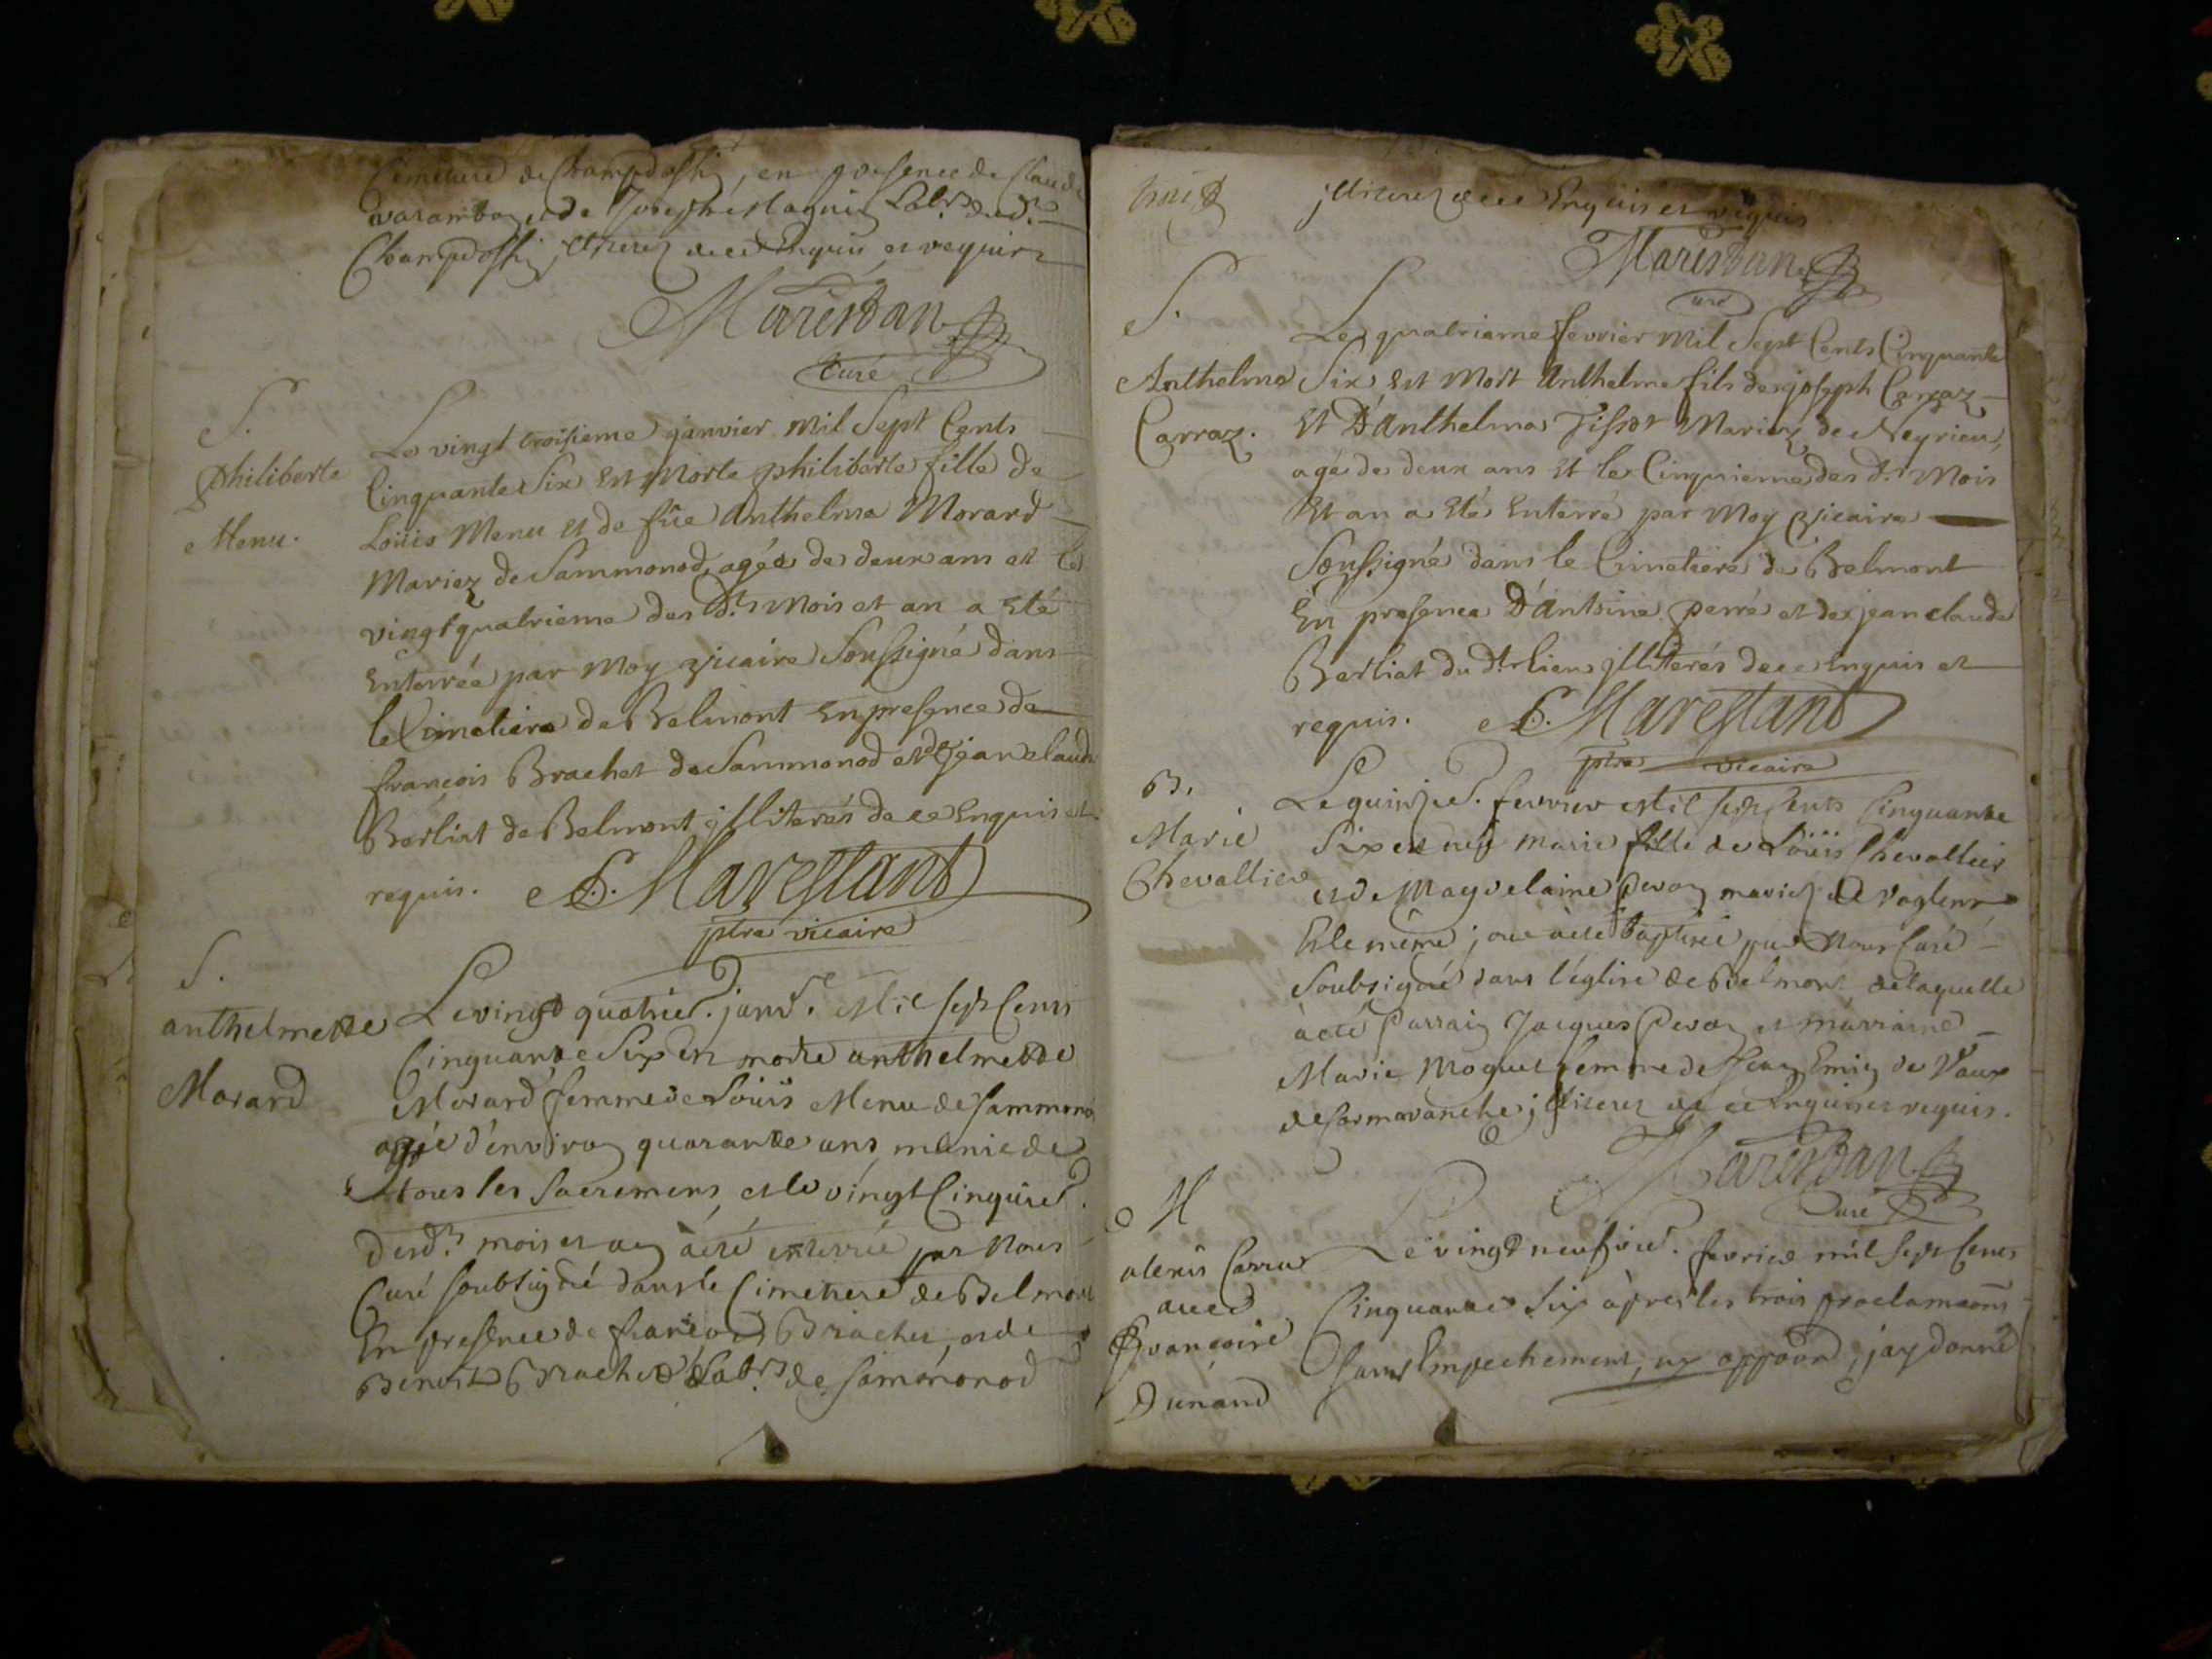 Cimetiere de Champdossin, en presence de Claude
varambon et de Joseph Magnin Lab.rs dud.t
Champdossin illiterez de ce Enquis et requis
Marestan
Curé
S.
Philiberte
Menu.
Le vingt troisieme janvier mil Sept Cents
Cinquante Six est Morte philiberte fille de
Loüis Menu et de füe Anthelma Morard
Mariez de Sammonod, agée de deux ans et le
vingt quatrieme des d.ts Mois et an a Eté
Enterrée par Moy vicaire Soussigné dans
le Cimetiere de Belmont En presence de
françois Brachet de Sammonod et de jean claude
Berliat de Belmont illiterés de ce Enquis et
requis. Marestant
ptre vicaire
S.
anthelmette
Morard
Le vingt quatrie. janv. Mil sept Cents
Cinquante Six est morte anthelmette
Morard femme de Loüis Menu de Sammonod
agée d'environ quarante ans, munie de
tous les Sacremens, et le vingt Cinquie.
desd.ts mois et an à eté enterrée par Nous
Curé soubsigné dans le Cimetiere de Belmont
En presence de françois Brachet, et de
Benoit Brachet Lab.rs de sammonod
illiterez de ce Enquis et requis
Marestan
Curé
S.
Anthelme
Carraz.
Le quatrieme fevrier Mil Sept Cents Cinquante
Six est Mort Anthelme fils de joseph Carraz
Et D'Anthelma Tissot Mariez de Neyrieu,
agé de deux ans Et le Cinquieme des d.ts Mois
Et an a Eté Enterré par Moy vicaire
Soussigné dans le Cimetiere de Belmont
En presence D'Antoine perré et de jean claude
Berliat du d.t lieu illiterés de ce Enquis et
requis. Marestant
ptre vicaire
B.
Marie
Chevallier
Le quinzie. fevrier Mil sept Cents Cinquante
Six est née marie fille de Loüis Chevallier
et de Magdelaine mariez de
Et le même jour à eté baptisée par Nous Curé
Soubsigné dans l'église de Belmont de laquelle
à eté Parrain Jacques et marraine
Marie femme de de Vaux
illiterez de ce Enquis et requis.
Marestan
Curé
M
alexis
avec
Françoise
Dunand
Le vingt neufvie. fevrier mil sept Cents
Cinquante Six après les trois proclamaons
sans Empechement, ny j'ay donné